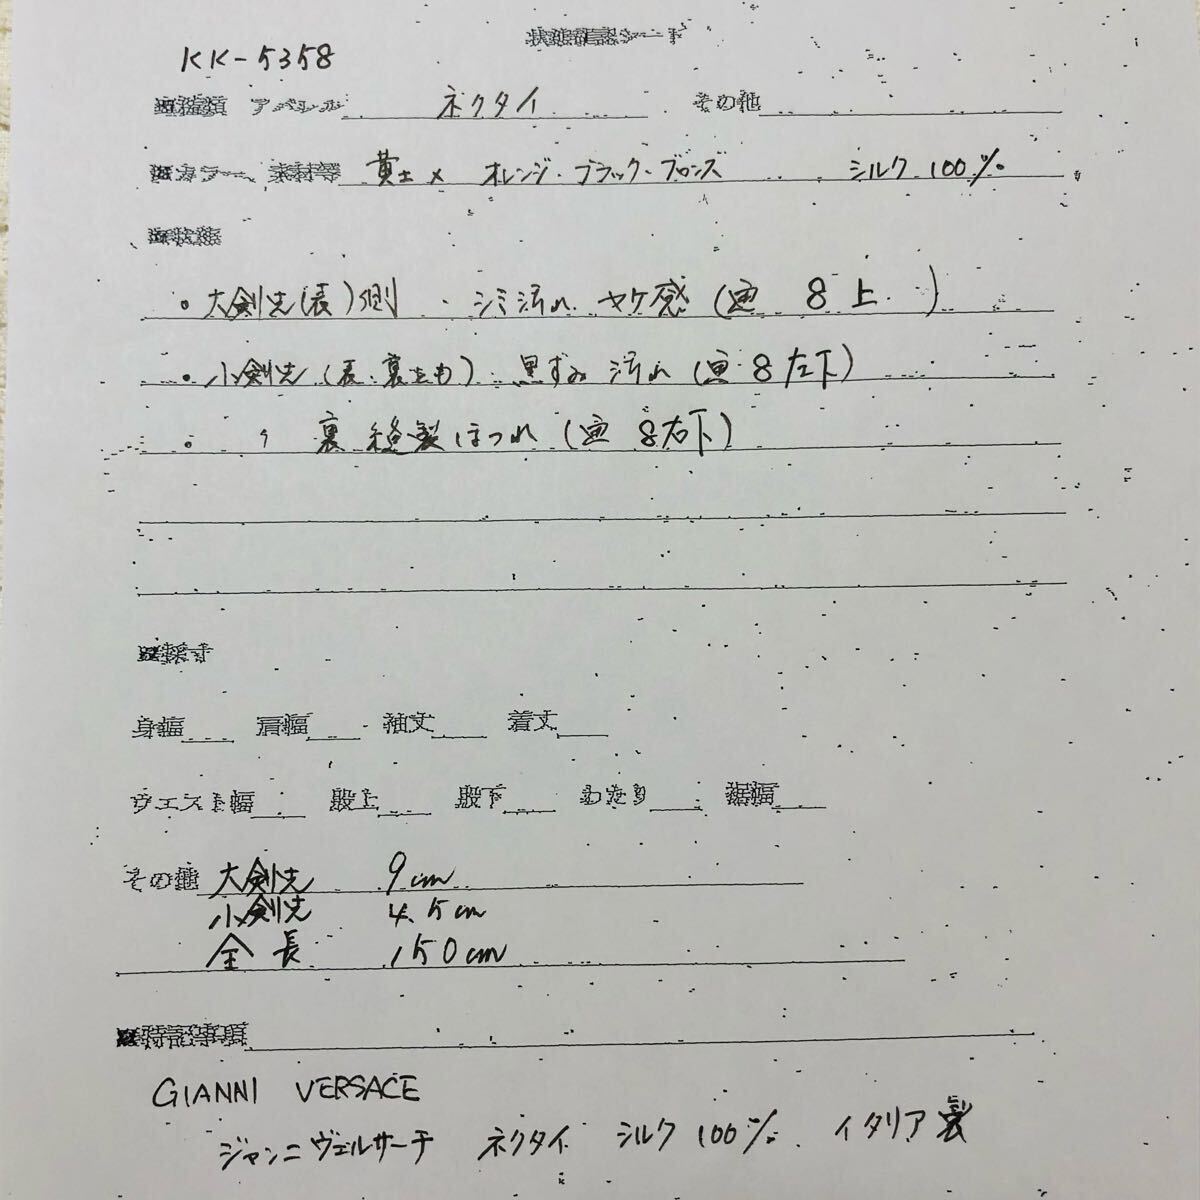 状態確認シート
KK-5358
種類 アパレル ネクタイ その他
カラー、素材等 黄土× オレンジ・ブラック・ブロンズ シルク100%
状態
・大剣先(表)側 ・シミ汚れ、ヤケ感(画 8上 )
・小剣先(表・裏とも)・黒ずみ汚れ(画・8左下)
・ 〃 裏 縫製ほつれ(画 8右下)
採寸
身幅 肩幅 袖丈 着丈
ウエスト幅 股上 股下 わたり 裾幅
その他 大剣先 9cm
小剣先 4.5cm
全長 150cm
特記事項
GIANNI VERSACE
ジャンニヴェルサーチ ネクタイ シルク100%. イタリア製